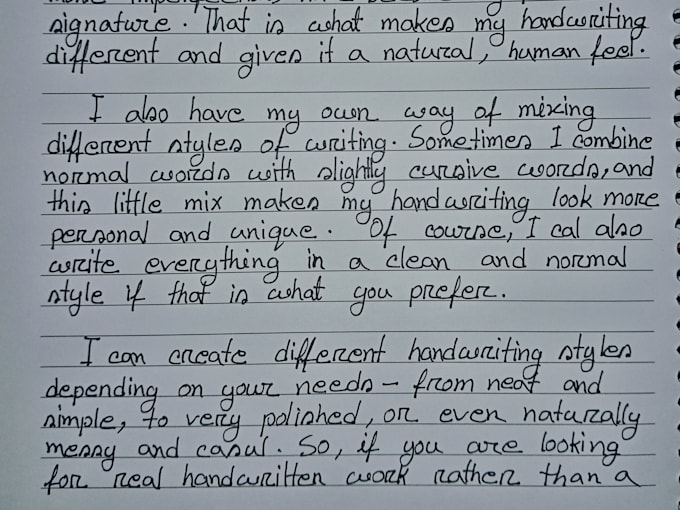 signature. That is what makes my handwriting
different and gives it a natural, human feel.
I also have my own way of mixing
different styles of writing. Sometimes I combine
normal words with slightly cursive words, and
this little mix makes my handwriting look more
personal and unique. Of course, I cal also
write everything in a clean and normal
style if that is what you prefer.
I can create different handwriting styles
depending on your needs – from neat and
simple, to very polished, or even naturally
messy and casul. So, if you are looking
for real handwritten work rather than a